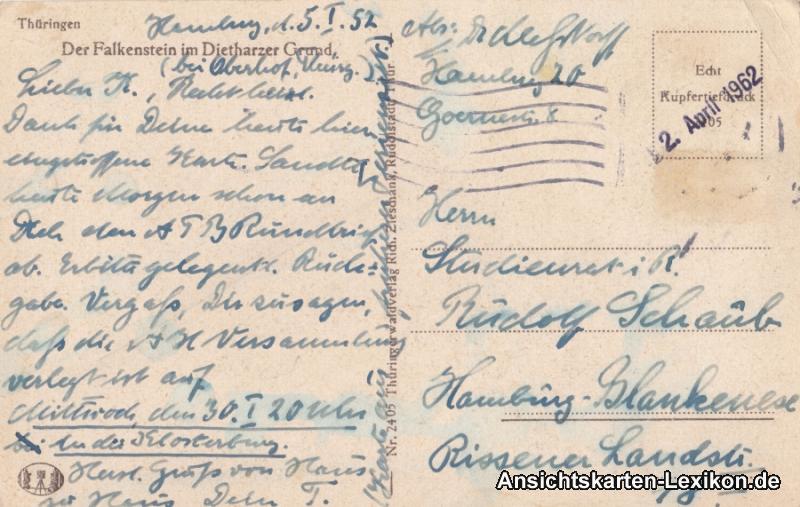 Thüringen
Hamburg, d. 5. I. 52
Der Falkenstein im Dietharzer Grund,
(bei Oberhof, Thürg.)
Lieber K., Recht herzl.
Dank für Deine heute hier
eingetroffene Karte. Sandte
heute Morgen schon an
Dich den ATB Rundbrief
ab. Erbitte gelegentl. Rück-
gabe. Vergaß, Dir zu sagen,
daß die AH Versammlung
verlegt ist auf
Mittwoch, den 30. I 20 Uhr
in der Klosterburg.
Herzl. Gruß von Haus
zu Haus Dein T.
Nr. 2405 Thüringerwaldverlag Rich. Zieschang, Rudolstadt, Thür.
Abs:
Hamburg 20
Goernestr. 8
Echt
Kupfertiefdruck
2. April 1962
Herrn
Studienrat i. R.
Rudolf Schaub
Hamburg-Blankenese
Rissener Landstr.
Ansichtskarten-Lexikon.de